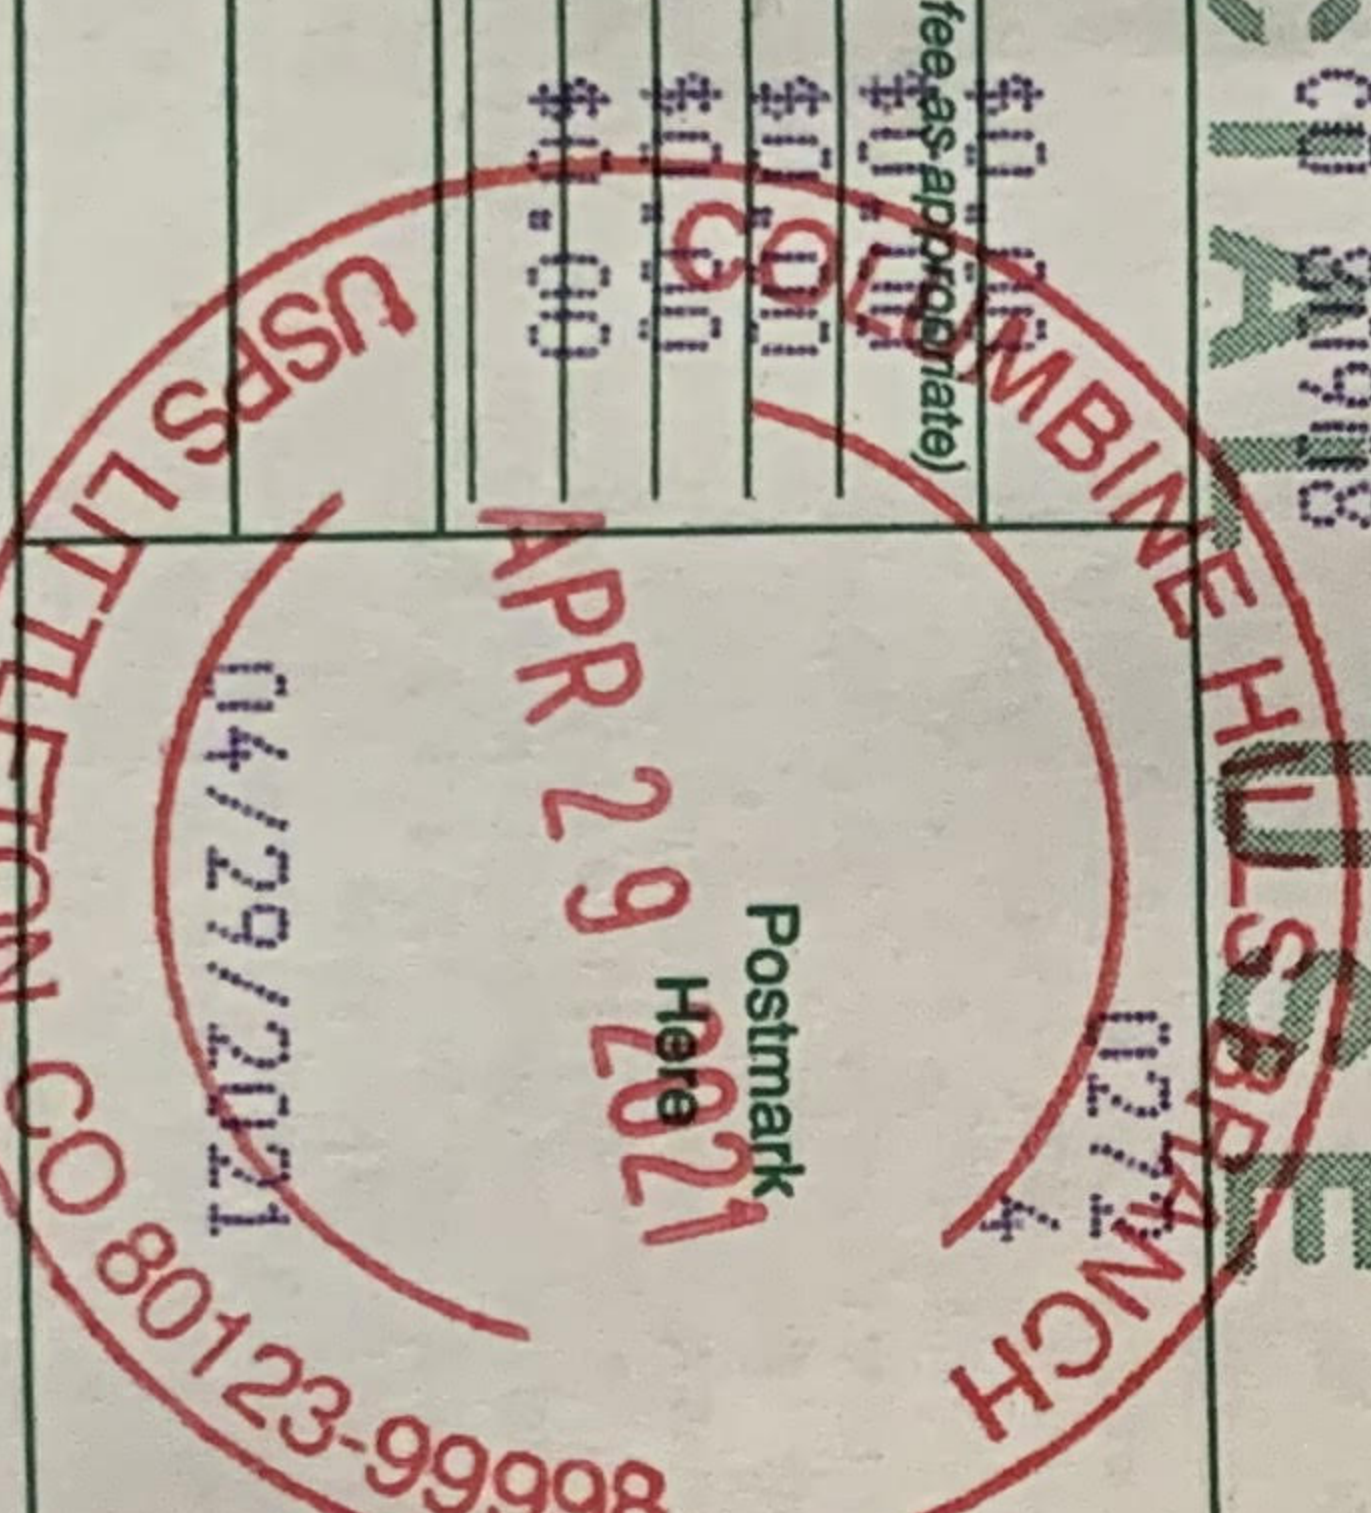 OFFICIAL USE
fee as appropriate)
$0.00
$0.00
$0.00
$0.00
0271
Postmark
Here
04/29/2021
COLUMBINE HILLS BRANCH
APR 29 2021
USPS LITTLETON CO 80123-99998